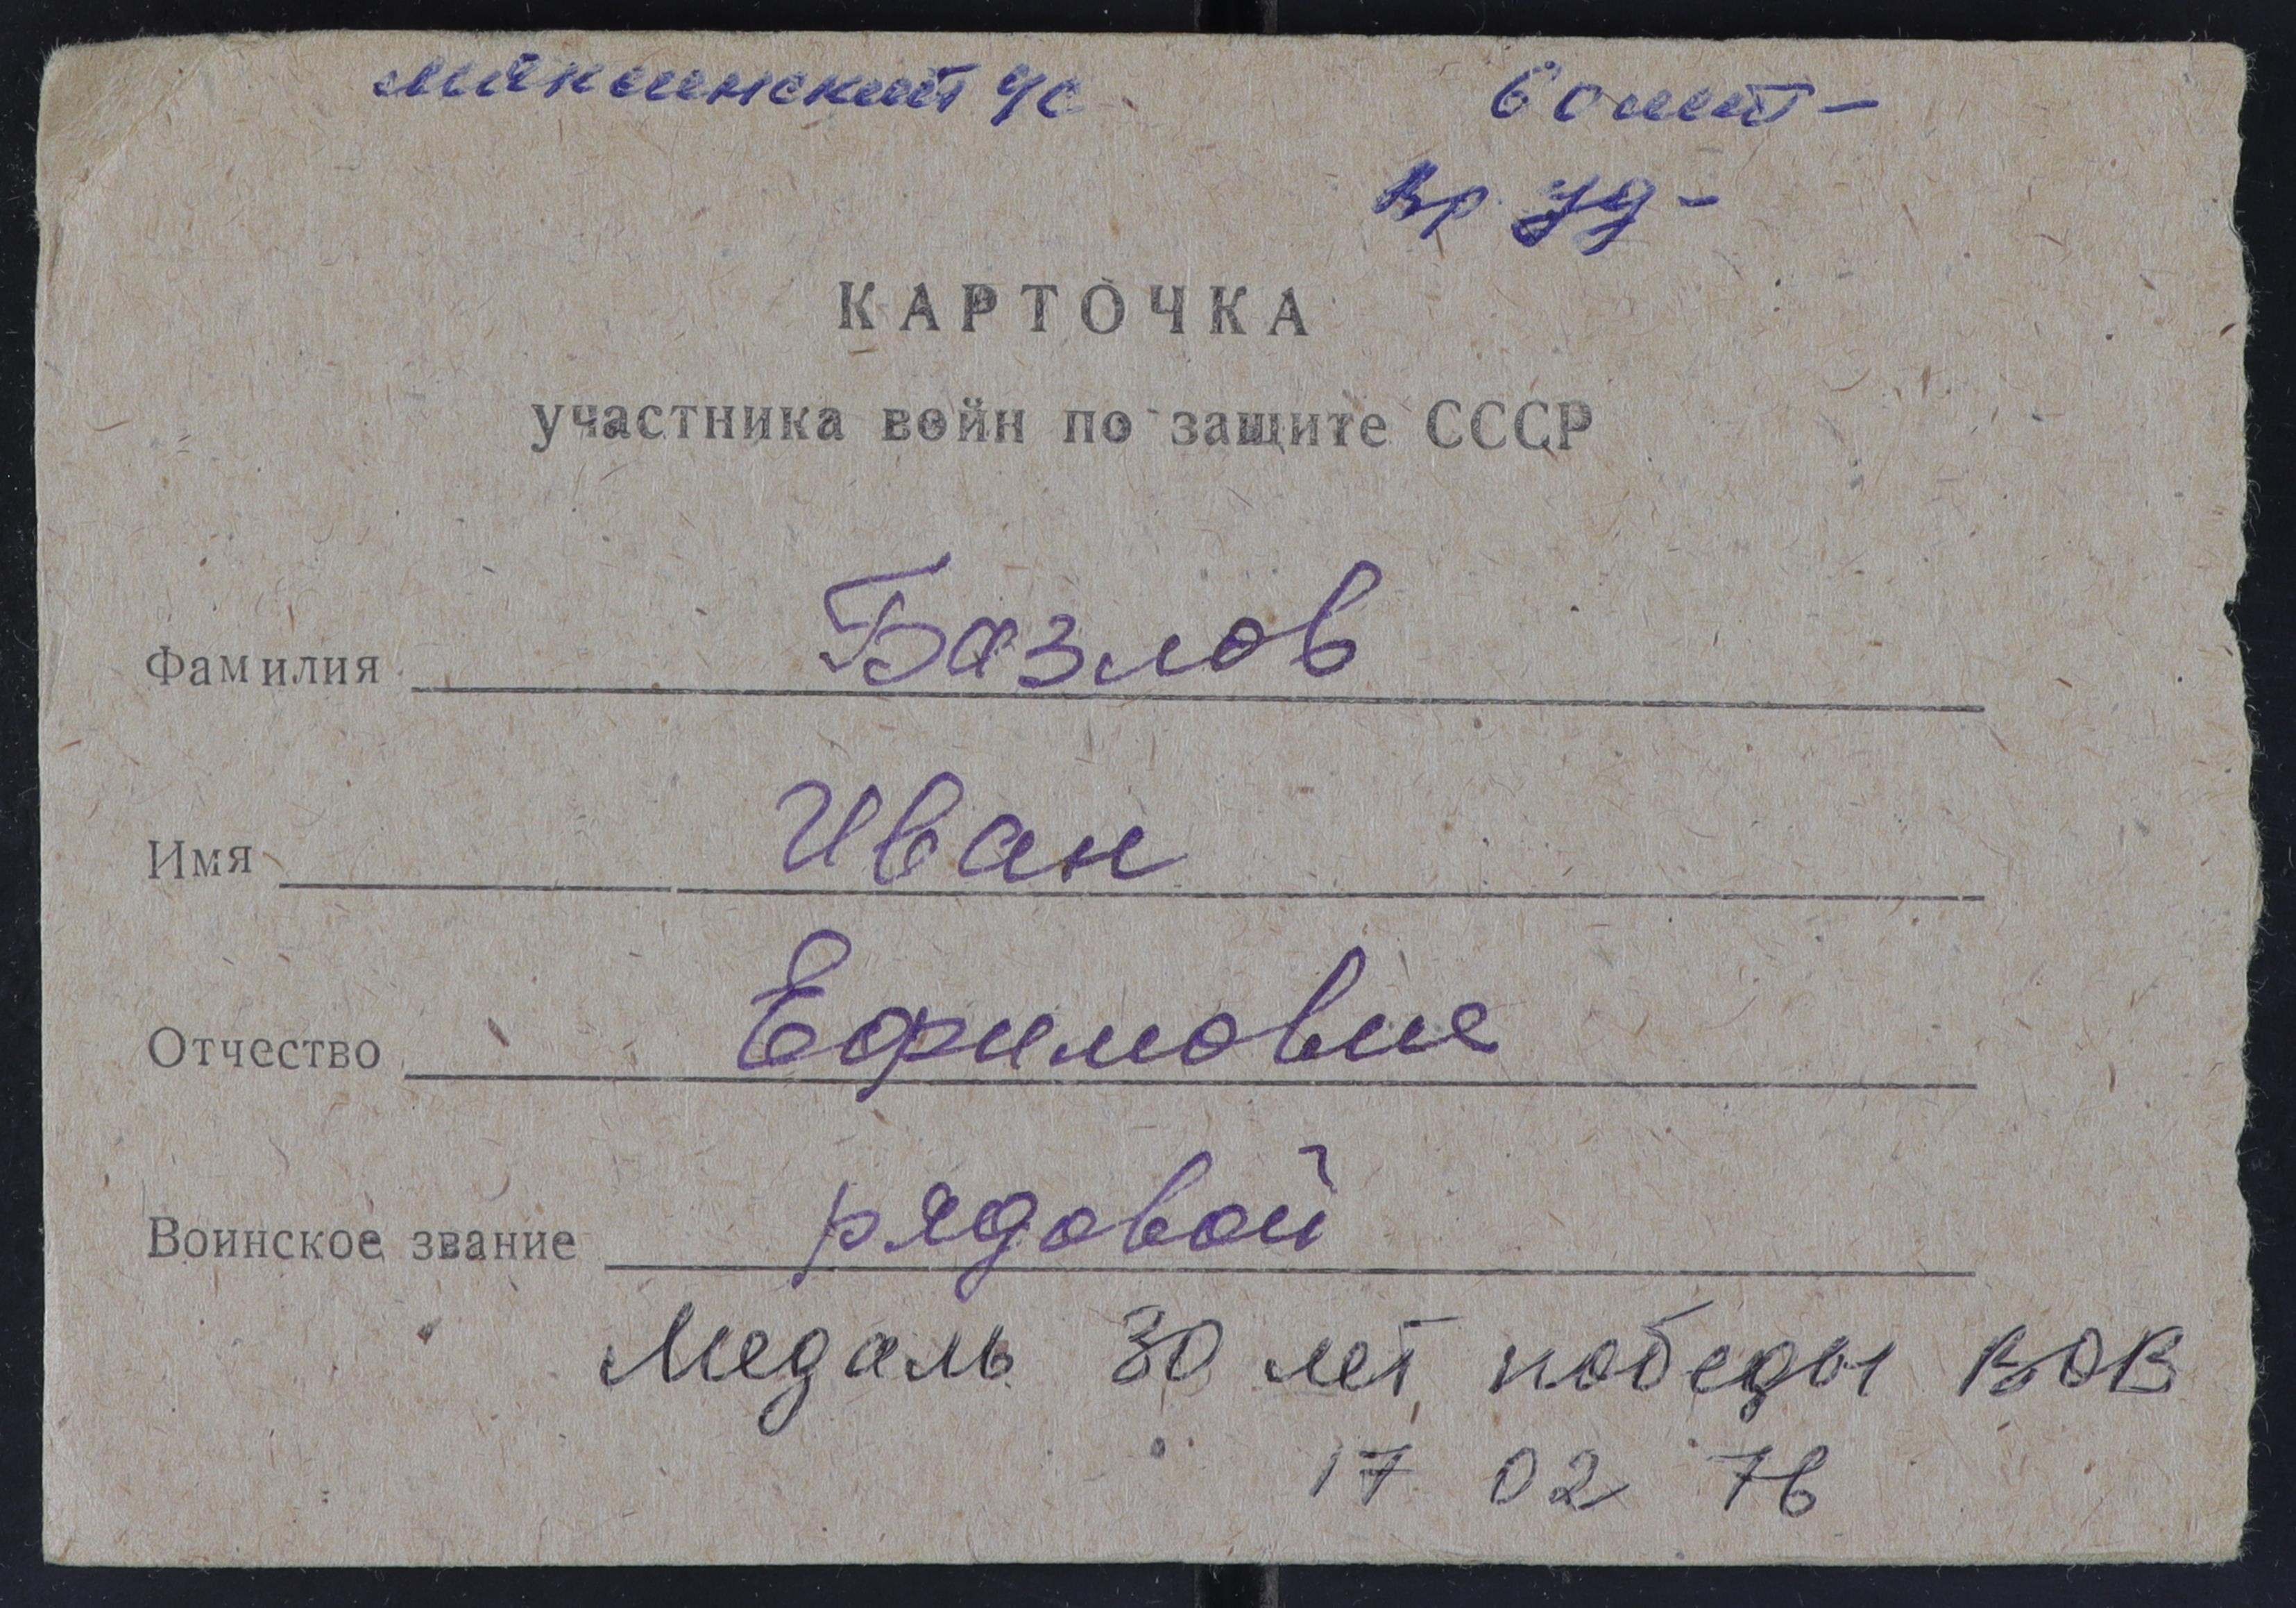 чс
вр уд -
КАРТОЧКА
участника войн по защите СССР
Фамилия Базлов
Имя Иван
Отчество Ефимович
Воинское звание рядовой
Медаль 30 лет победы ВОВ
17 02 76